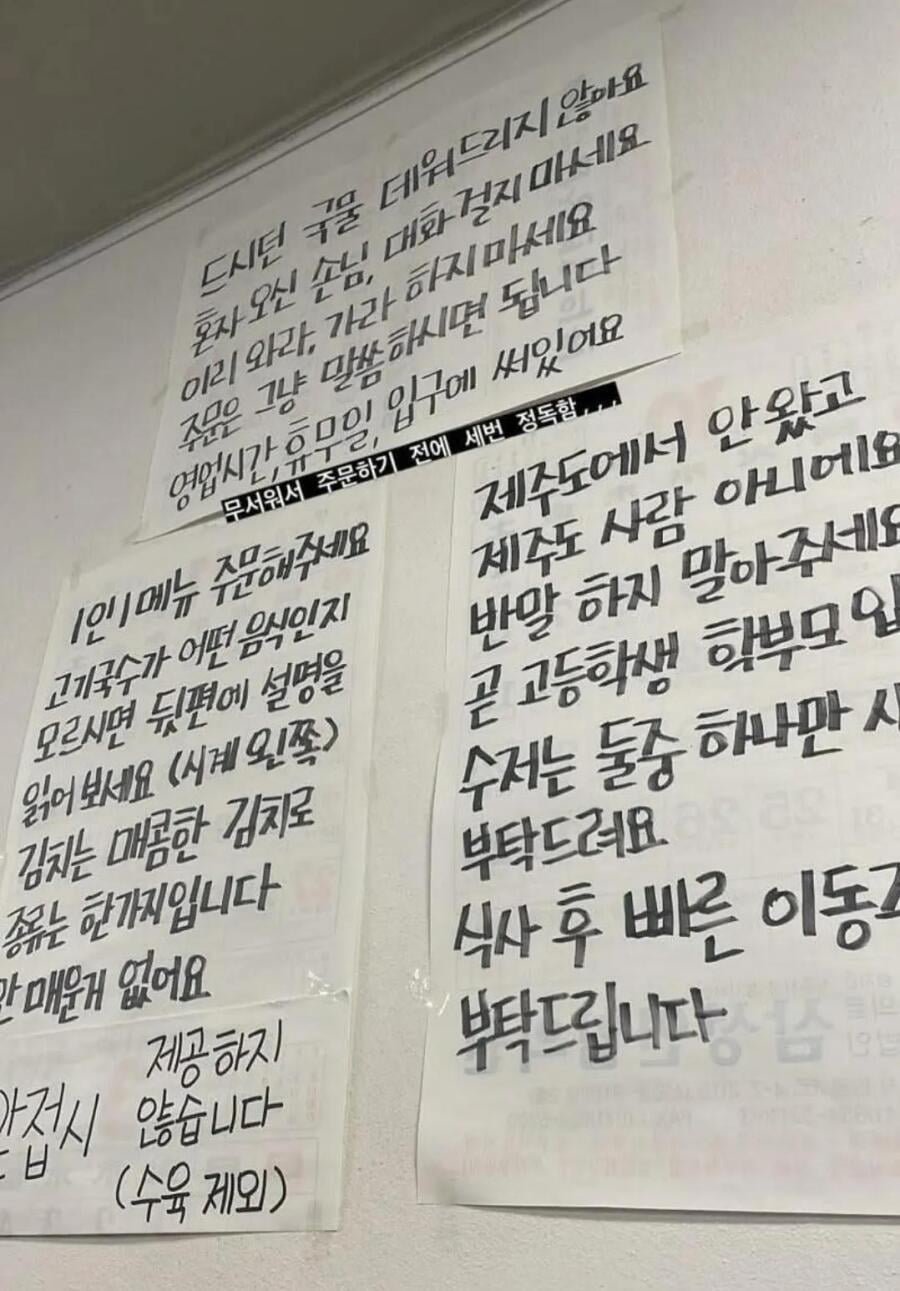 드시던 국물 데워드리지 않아요
혼자 오신 손님, 대화 걸지 마세요
이리 와라, 가라 하지 마세요
주문은 그냥 말씀하시면 됩니다
영업시간, 휴무일, 입구에 써있어요
무서워서 주문하기 전에 세번 정독함...
1인 1메뉴 주문해주세요
고기국수가 어떤 음식인지
모르시면 뒷편에 설명을
읽어 보세요 (시계 왼쪽)
김치는 매콤한 김치로
종류는 한가지입니다
매운게 없어요
제공하지
앞접시 않습니다
(수육 제외)
제주도에서 안 왔고
제주도 사람 아니에요
반말 하지 말아주세요
곧 고등학생 학부모
수저는 둘중 하나만
부탁드려요
식사 후 빠른 이동
부탁드립니다